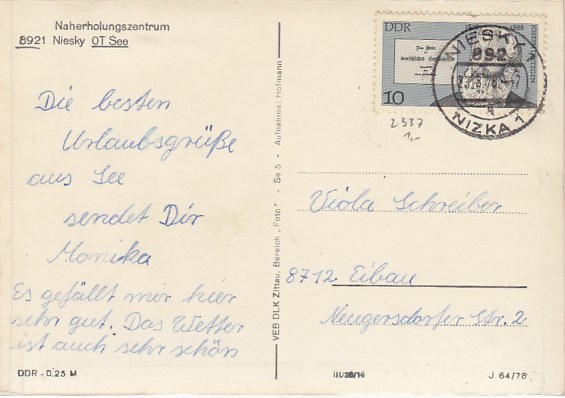 Naherholungszentrum
8921 Niesky OT See
Die besten
Urlaubsgrüße
aus See
sendet Dir
Monika
Es gefällt mir hier
sehr gut. Das Wetter
ist auch sehr schön
DDR - 0,25 M
VEB DLK Zittau, Bereich „Foto" · Se 5 · Aufnahme: Hofmann
DDR
1888
10
NIESKY 1
892
NIZKA 1
2337
1,-
Viola Schreiber
8712 Eibau
Neugersdorfer Str. 2
III/28/14
J 64/78